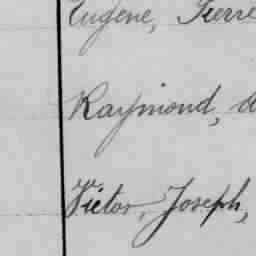 Eugène, Pierre
Raymond,
Victor, Joseph,